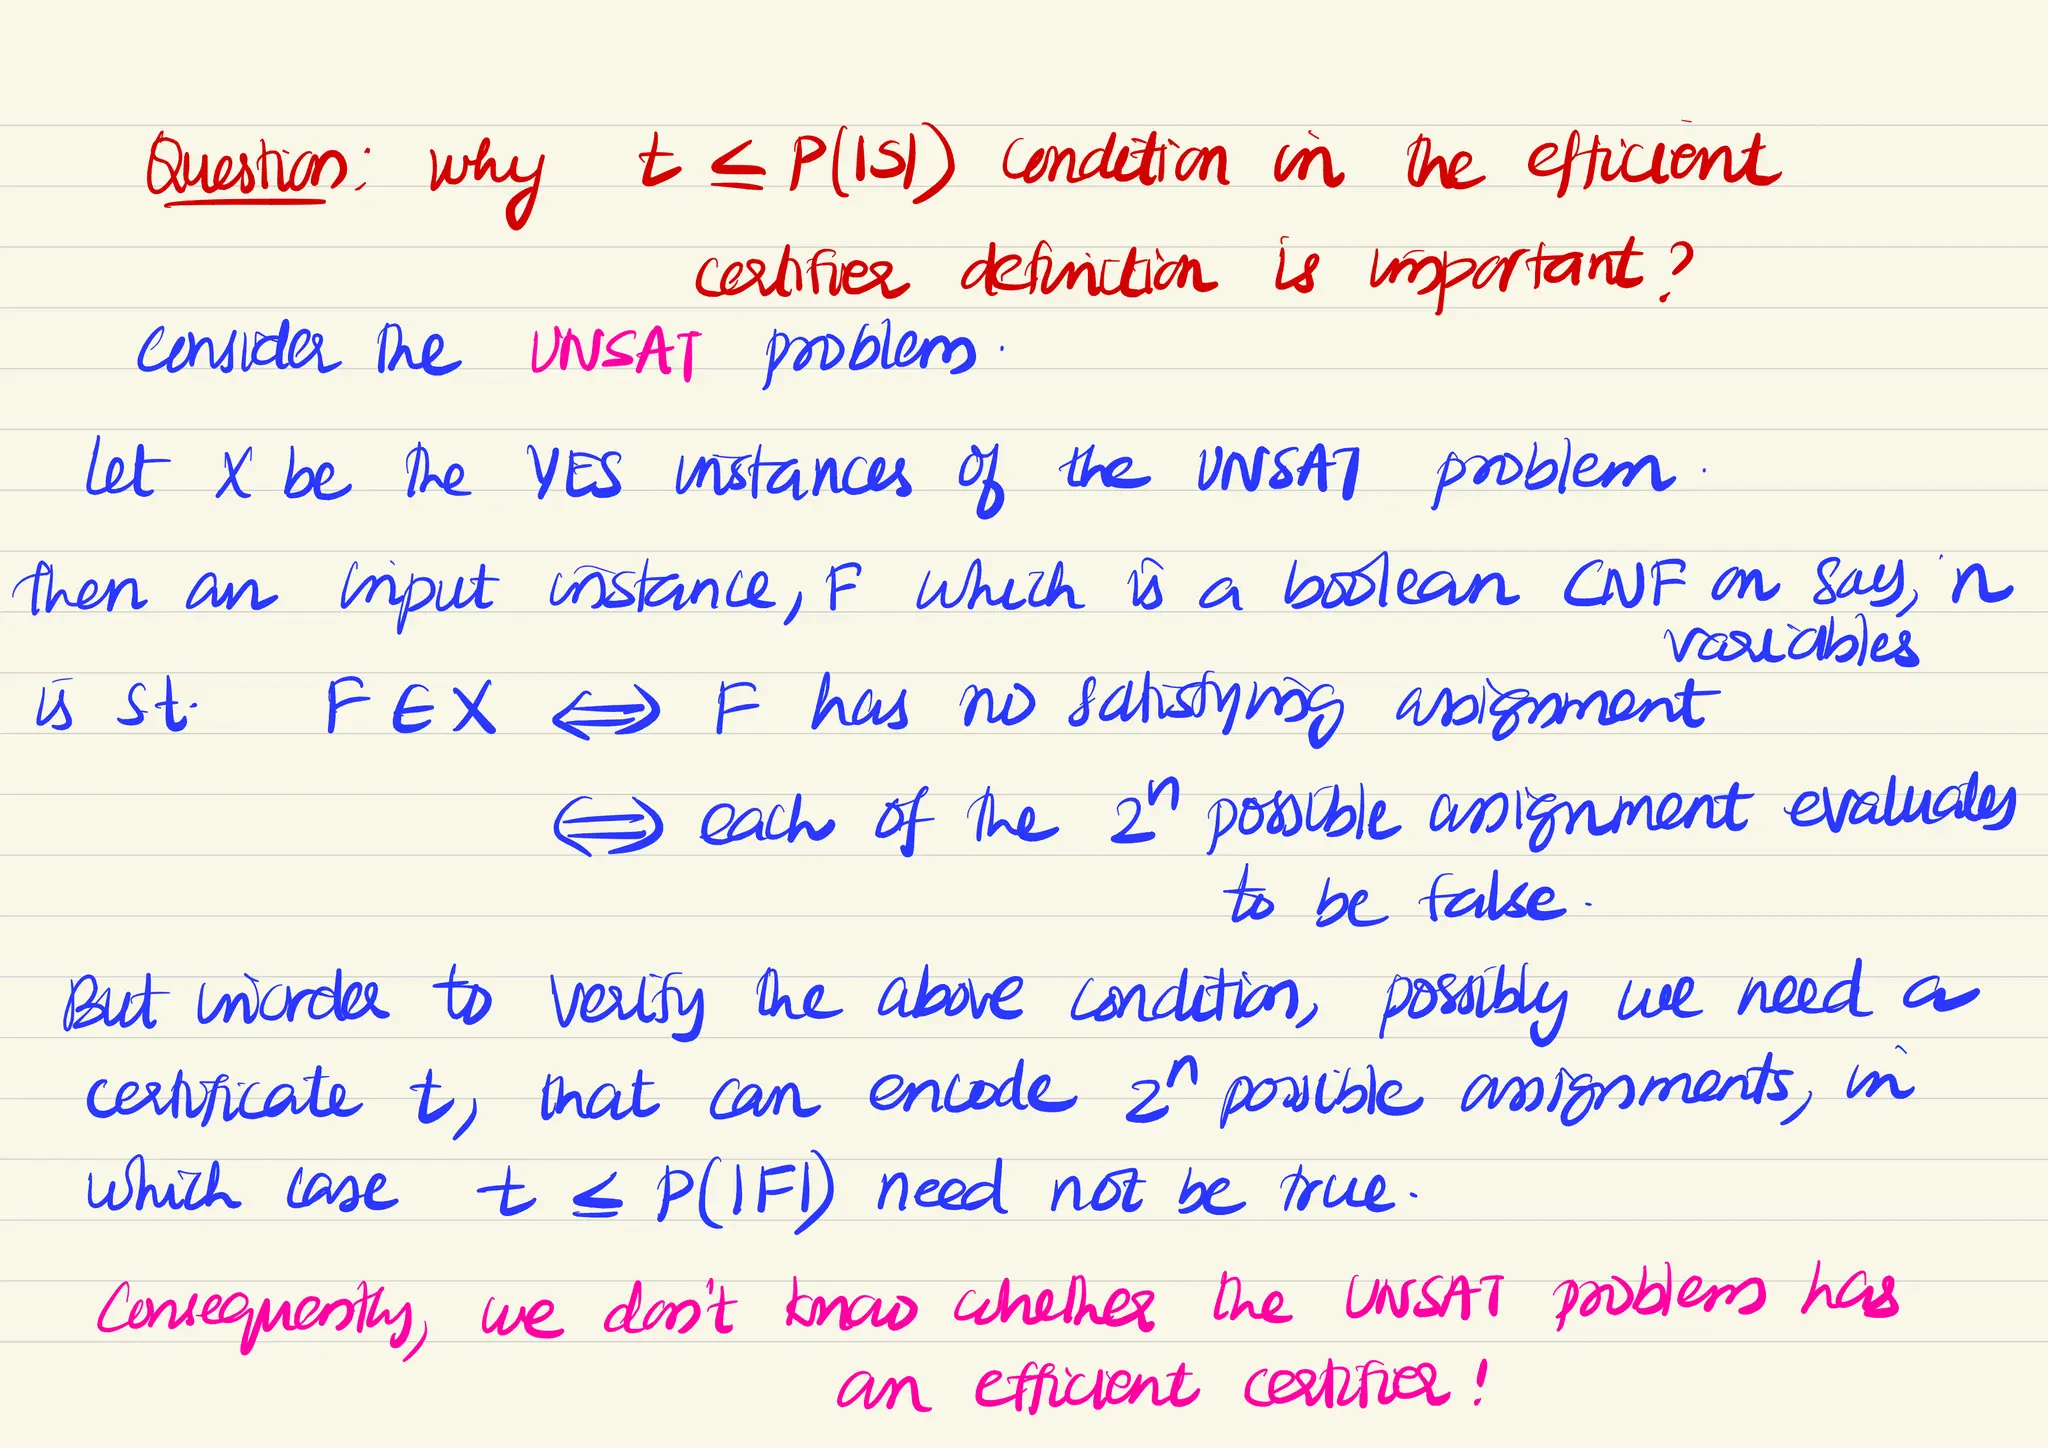 Question: why t ≤ P(|S|) condition in the efficient
certifier definition is important?
Consider the UNSAT problem.
Let X be the YES instances of the UNSAT problem.
Then an input instance, F which is a boolean CNF on say, n
variables
is st. F ∈ X ⟺ F has no satisfying assignment
⟺ each of the 2ⁿ possible assignment evaluates
to be false.
But inorder to verify the above condition, possibly we need a
certificate t, that can encode 2ⁿ possible assignments, in
which case t ≤ P(|F|) need not be true.
Consequently, we don't know whether the UNSAT problem has
an efficient certifier!